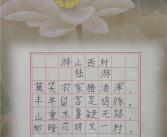 游山西村
陆游
莫笑农家腊酒浑，
丰年留客足鸡豚。
山重水复疑无路，
柳暗花明又一村。